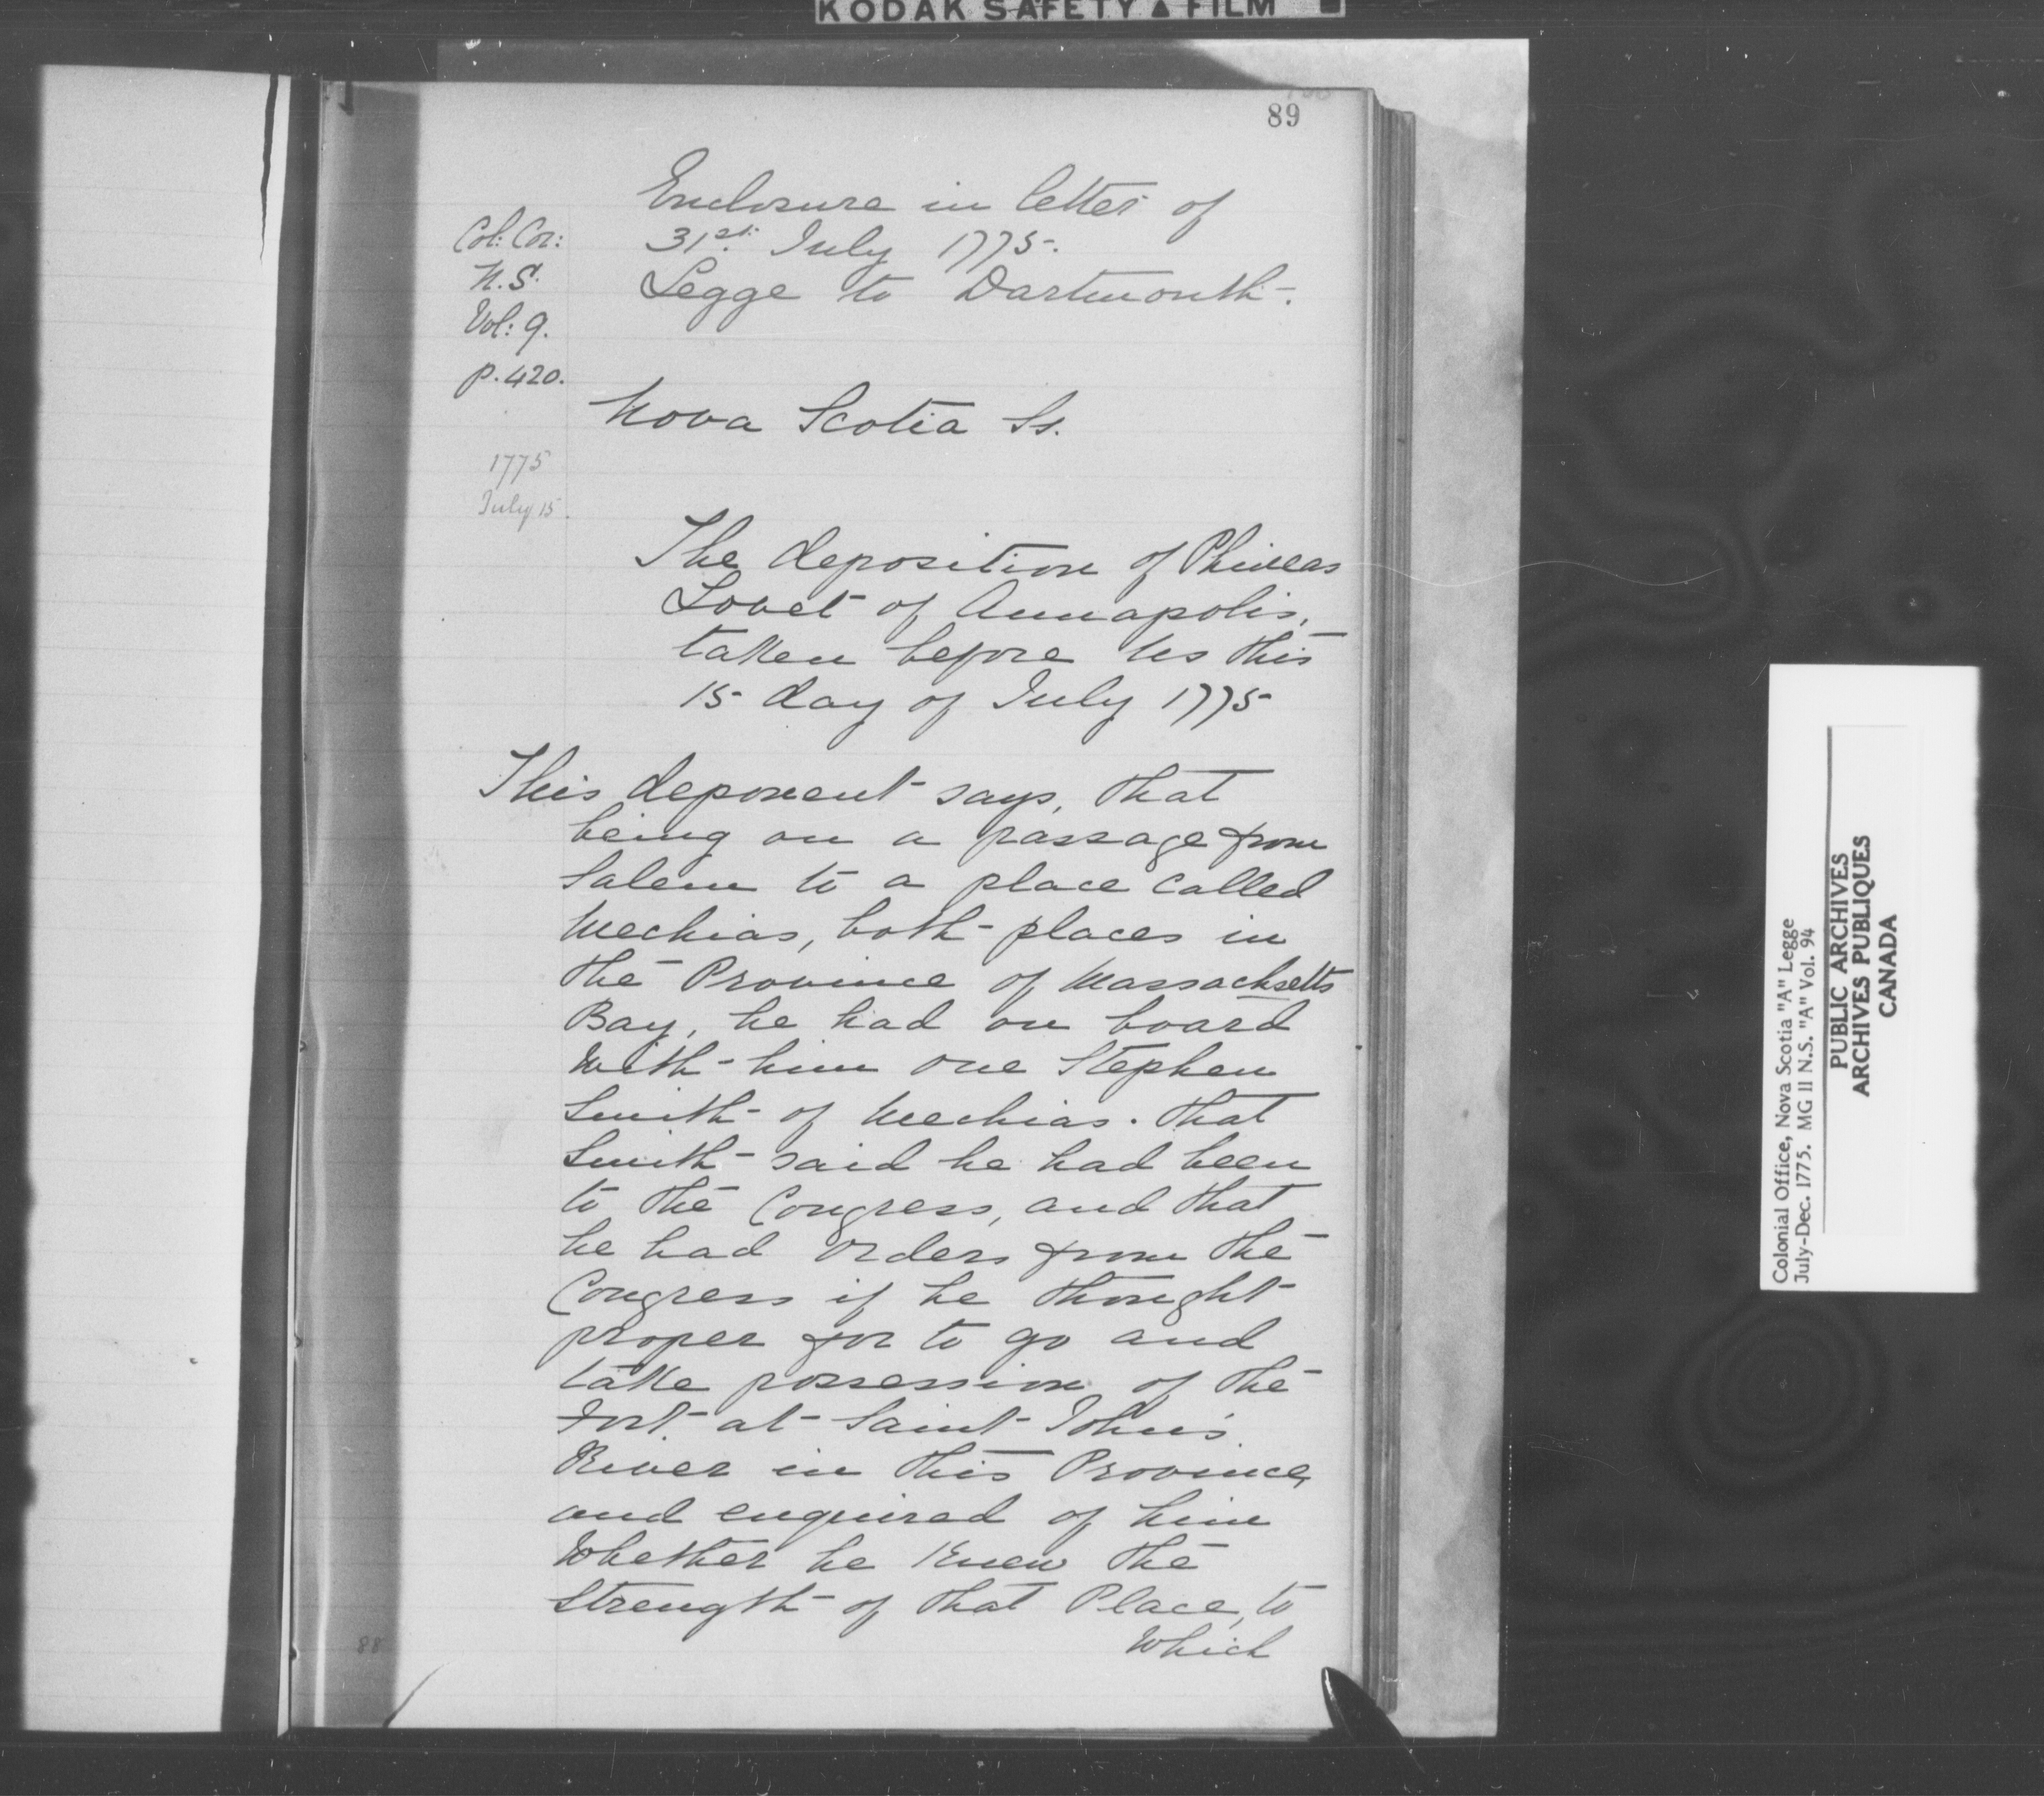 KODAK SAFETY ▲ FILM
89
Enclosure in letter of
31st July 1775.
Legge to Dartmouth.
Col: Cor:
N.S.
Vol: 9.
p. 420.
Nova Scotia Ss.
1775
July 15.
The deposition of Phineas
Lovet of Annapolis,
taken before Us this
15 day of July 1775
This deponent says, that
being on a passage from
Salem to a place called
Mechias, both places in
the Province of Massachsetts
Bay, he had on board
With him one Stephen
Smith of Mechias. that
Smith said he had been
to the Congress, and that
he had orders from the
Congress if he thought
proper for to go and
take possession of the
Fort at Saint John's
River in this Province,
and enquired of him
Whether he Knew the
Strength of that Place, to
Which
88
Colonial Office, Nova Scotia "A" Legge
July-Dec. 1775. MG II N.S. "A" Vol. 94
PUBLIC ARCHIVES
ARCHIVES PUBLIQUES
CANADA